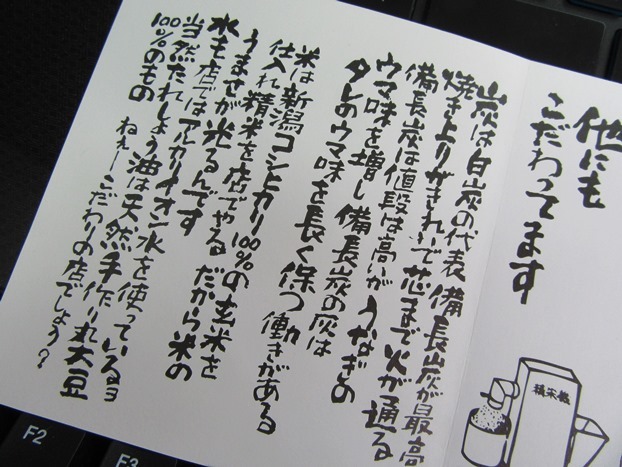 他にも
こだわってます
炭は白炭の代表 備長炭が最高
焼き上りがきれいで芯まで火が通る
備長炭は値段は高いが うなぎの
ウマ味を増し 備長炭の灰は
タレのウマ味を長く保つ働きがある
米は新潟コシヒカリ100%の玄米を
仕入れ精米を店でやる だから米の
うまさが光るんです
水も店ではアルカイオン水を使っているヨ
当然たれしょう油は天然手作り丸大豆
100%のもの ねぇーこだわりの店でしょう?
精米機
F2
F3